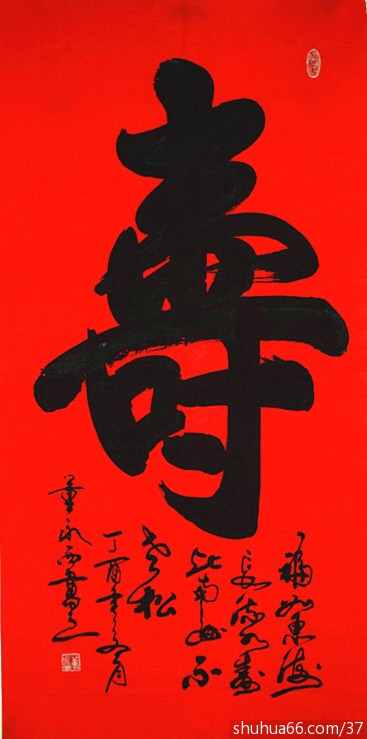 壽
福如東海
長流水壽
比南山不
老松
丁酉年月
shuhua66.com/37